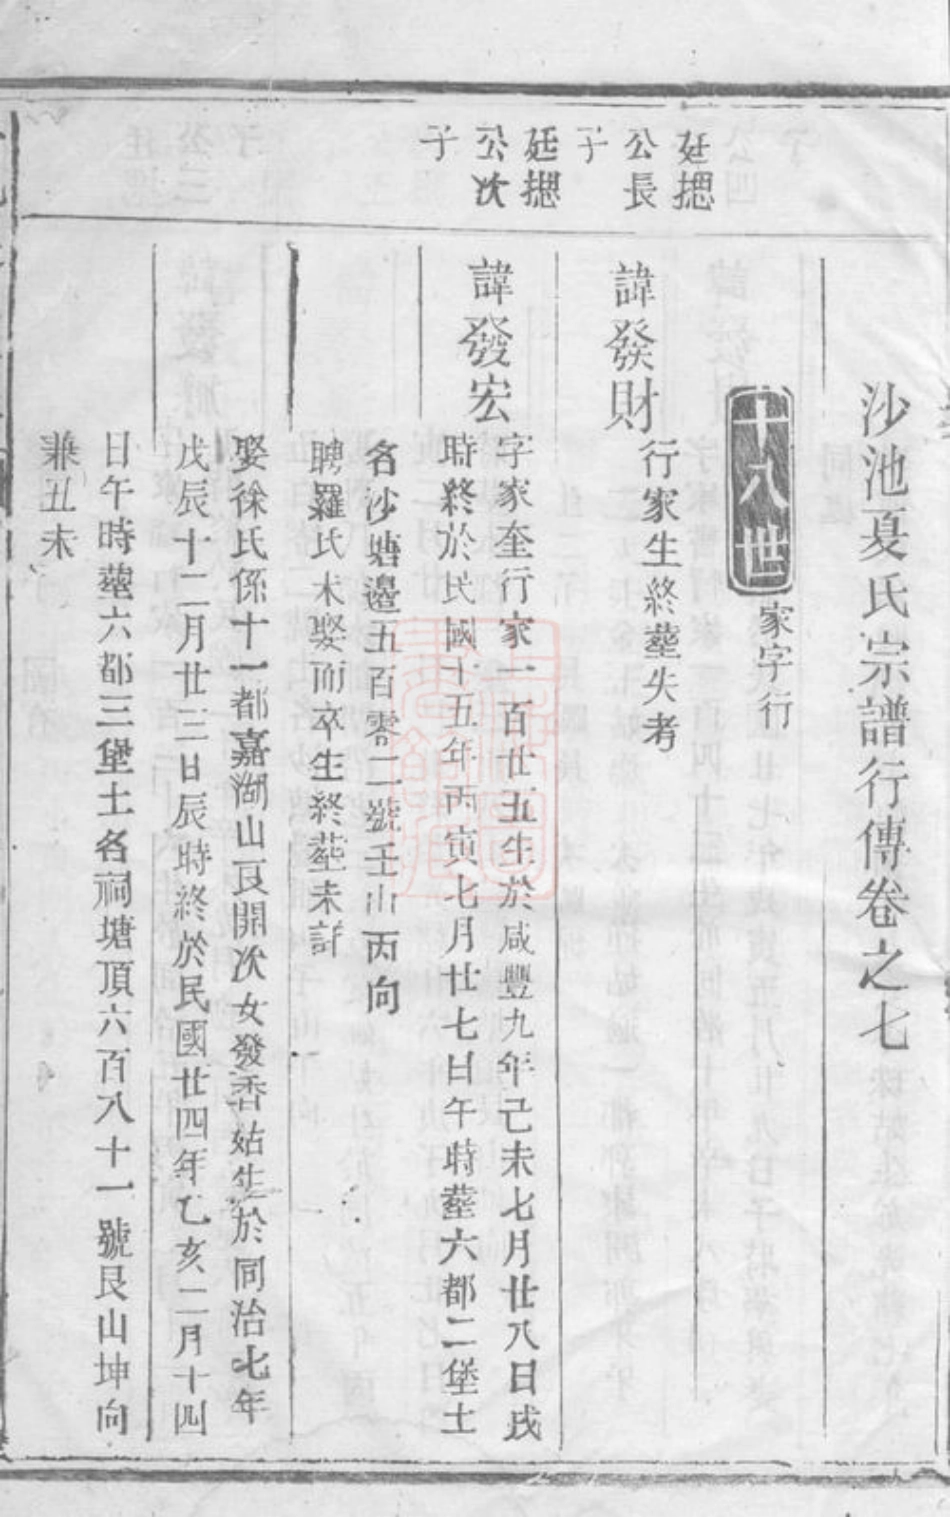 沙池夏氏宗譜行傳卷之七
十八世
家字行
廷摠
公長
子
諱發財
行家生終塟失考
廷摠
公次
子
諱發宏
字家奎行家一百廿五生於咸豐九年己未七月廿八日戌
時終於民國十五年丙寅七月廿七日午時塟六都二堡土
名沙塘邉五百零二號壬山丙向
聘羅氏未娶而卒生終塟未詳
娶徐氏係十一都嘉湖山艮開次女發香姑生於同治七年
戊辰十二月廿三日辰時終於民國廿四年乙亥二月十四
日午時塟六都三堡土名祠塘頂六百八十一號艮山坤向
兼丑未